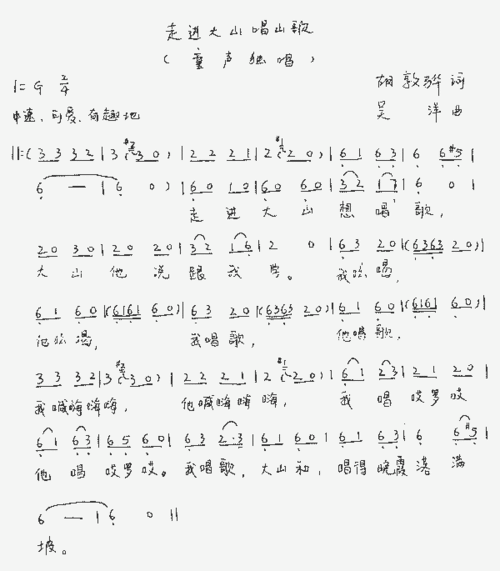 走进大山唱山歌
（童声独唱）
1=G 2/4
胡敦骅 词
中速、可爱、有趣地
吴 洋 曲
‖:(3 3 3 2 | 3 (#2 3 0) | 2 2 2 1 | 2 (#1 2 0) | 6 1 6 3 | 6 6 #5 |
6 — | 6 0) | 6 0 1 0 | 6 0 6 0 | 3 2 1 7 | 6 0 |
走 进 大 山 想 唱 歌，
2 0 3 0 | 2 0 2 0 | 3 2 1 6 | 2 0 | 6 3 2 0 | (6363 2 0) |
大 山 他 说 跟 我 学。 我 唱，
6 1 6 0 | (6161 6 0) | 6 3 2 0 | (6363 2 0) | 6 1 6 0 | (6161 6 0) |
他 唱， 我唱歌， 他唱歌，
3 3 3 2 | 3 (#2 3 0) | 2 2 2 1 | 2 (#1 2 0) | 6 1 2 3 | 2 1 2 0 |
我喊嗨嗨嗨， 他喊嗨嗨嗨， 我 唱 哎罗哎
6 1 6 3 | 6 5 6 0 | 6 3 2·3 | 6 1 6 0 | 6 1 6 3 | 6 6 #5 |
他 唱 哎罗哎。我唱歌，大山和，唱得晚霞落 满
6 — | 6 0 ‖
坡。